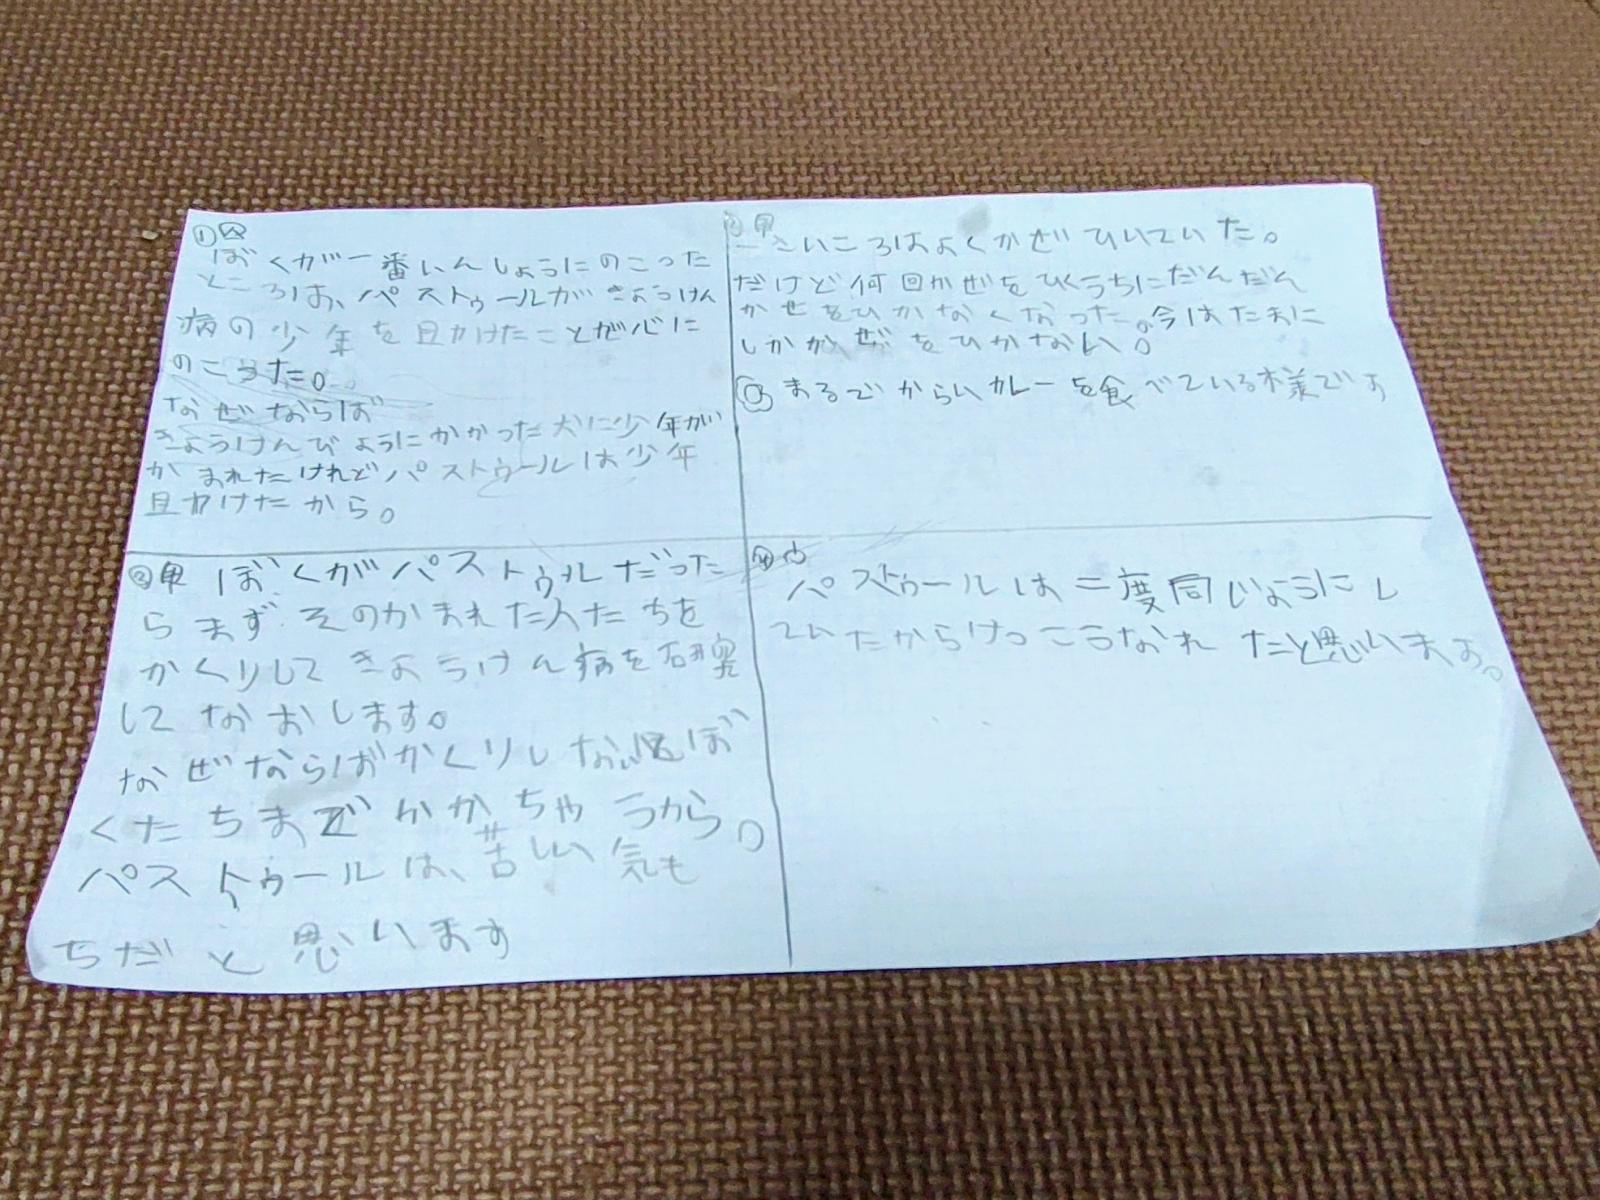 ①
ぼくが一番いんしょうにのこった
ところは、パストゥールがきょうけん
病の少年を且かけたことが心に
のこった。
なぜならば
きょうけんびょうにかかった犬に少年が
かまれたけれどパストゥールは少年
且かけたから。
ぼくがパストゥルだった
らまず、そのかまれた人たちを
かくりしてきょうけん病を研究
してなおします。
なぜならばかくりしないとぼ
くたちまでかかちゃうから。
パストゥールは、苦しい気も
ちだと思います
さいころはよくかぜひいていた。
だけど何回かぜをひくうちにだんだん
かぜをひかなくなった。今はたまに
しかかぜをひかない。
まるでからいカレーを食べている様です
パストゥールは二度同じようにし
ていたからけっこうなれたと思います。